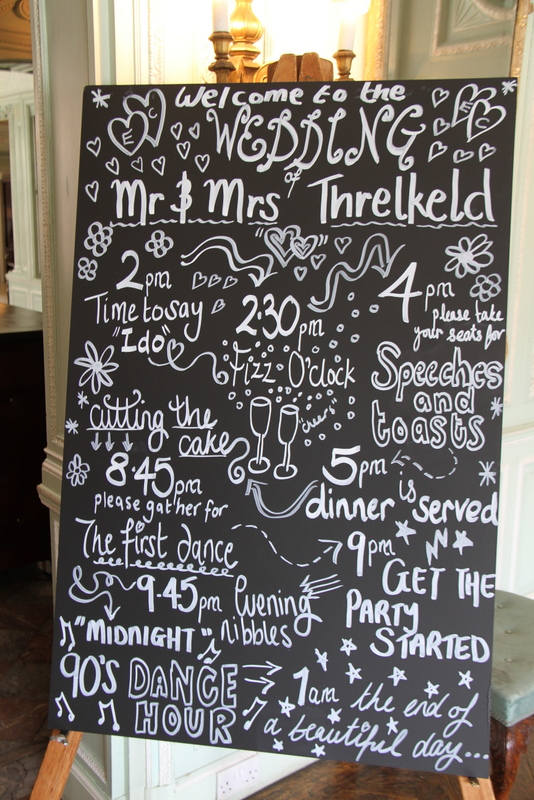 Welcome to the
WEDDING
of
Mr & Mrs Threlkeld
2pm
Time to say
"I do"
2.30pm
Fizz O'clock
"cheers"
4pm
please take
your seats for
Speeches
and
toasts
5pm
dinner is served
cutting the
cake
8.45pm
please gather for
The first dance
9pm
GET THE
PARTY
STARTED
9.45pm Evening
nibbles
"MIDNIGHT"
90'S DANCE
HOUR
1am the end of
a beautiful day...